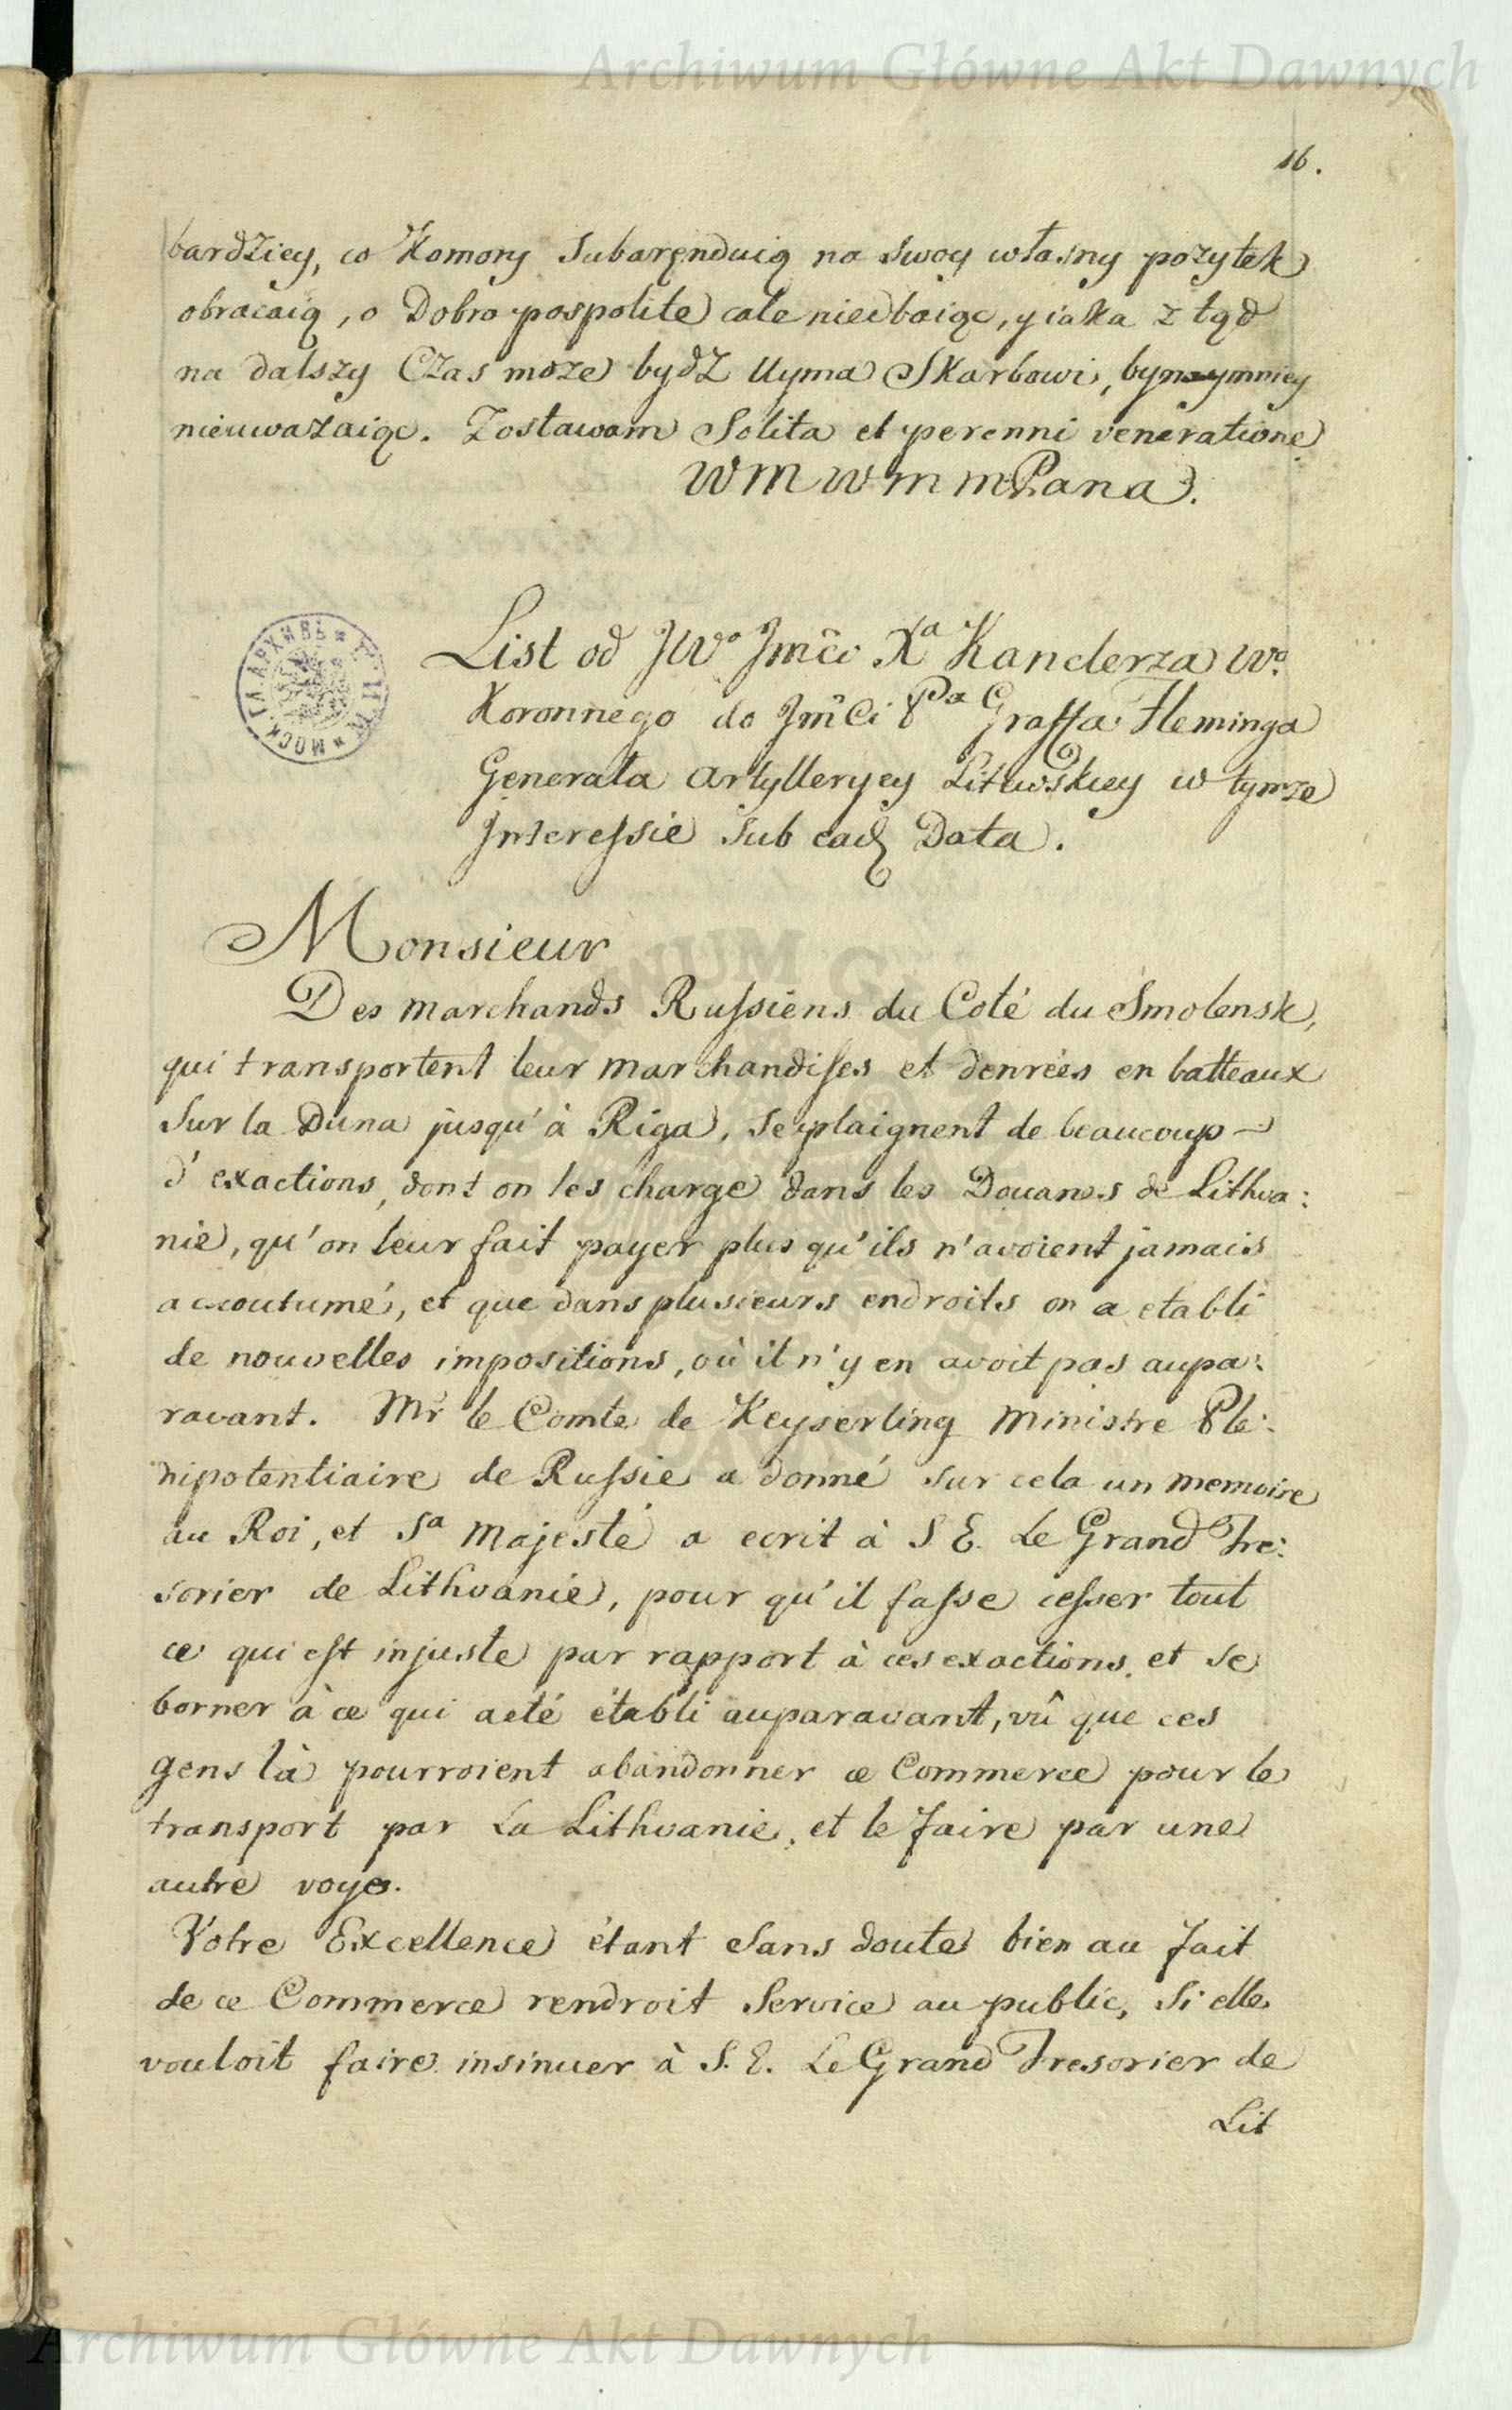 Archiwum Główne Akt Dawnych
16.
bardziey, co Komory Subaręnduią na swoy własny pozytek
obracaią, o Dobro pospolite cale niedbaiąc, y iaka z tąd
na dalszy Czas moze bydz Uyma Skarbowi, bynaymniey
nieuwazaiąc. Zostawam Solita et perenni veneratione
WM W m mPana.
List od JWo Jmci Xa Kanclerza Wo
Koronnego do Jmci Pa Graffa Fleminga
Generała Artylleryey Litewskiey w tymze
Interessie sub ead Data.
Monsieur
Des marchands Russiens du Coté du Smolensk,
qui transportent leur marchandises et denrées en batteaux
sur la Duna jusqu'à Riga, se plaignent de beaucoup
d'exactions, dont on les charge dans les Douanes de Lithva:
nie, qu'on leur fait payer plus qu'ils n'avoient jamais
accoutumé, et que dans plusieurs endroits on a etabli
de nouvelles impositions, où il n'y en avoit pas aupa:
ravant. Mr le Comte de Keyserling Ministre Ple:
nipotentiaire de Russie a donné sur cela un memoire
au Roi, et Sa Majesté a ecrit à S E. Le Grand Tre:
sorier de Lithvanie, pour qu'il fasse cesser tout
ce qui est injuste par rapport à ces exactions, et se
borner à ce qui a eté établi auparavant, vû que ces
gens là pourroient abandonner ce Commerce pour le
transport par La Lithvanie, et le faire par une
autre voye.
Votre Excellence étant sans doute bien au fait
de ce Commerce rendroit Service au public, Si elle
vouloit faire insinuer à S. E. Le Grand Tresorier de
Lit
Archiwum Główne Akt Dawnych